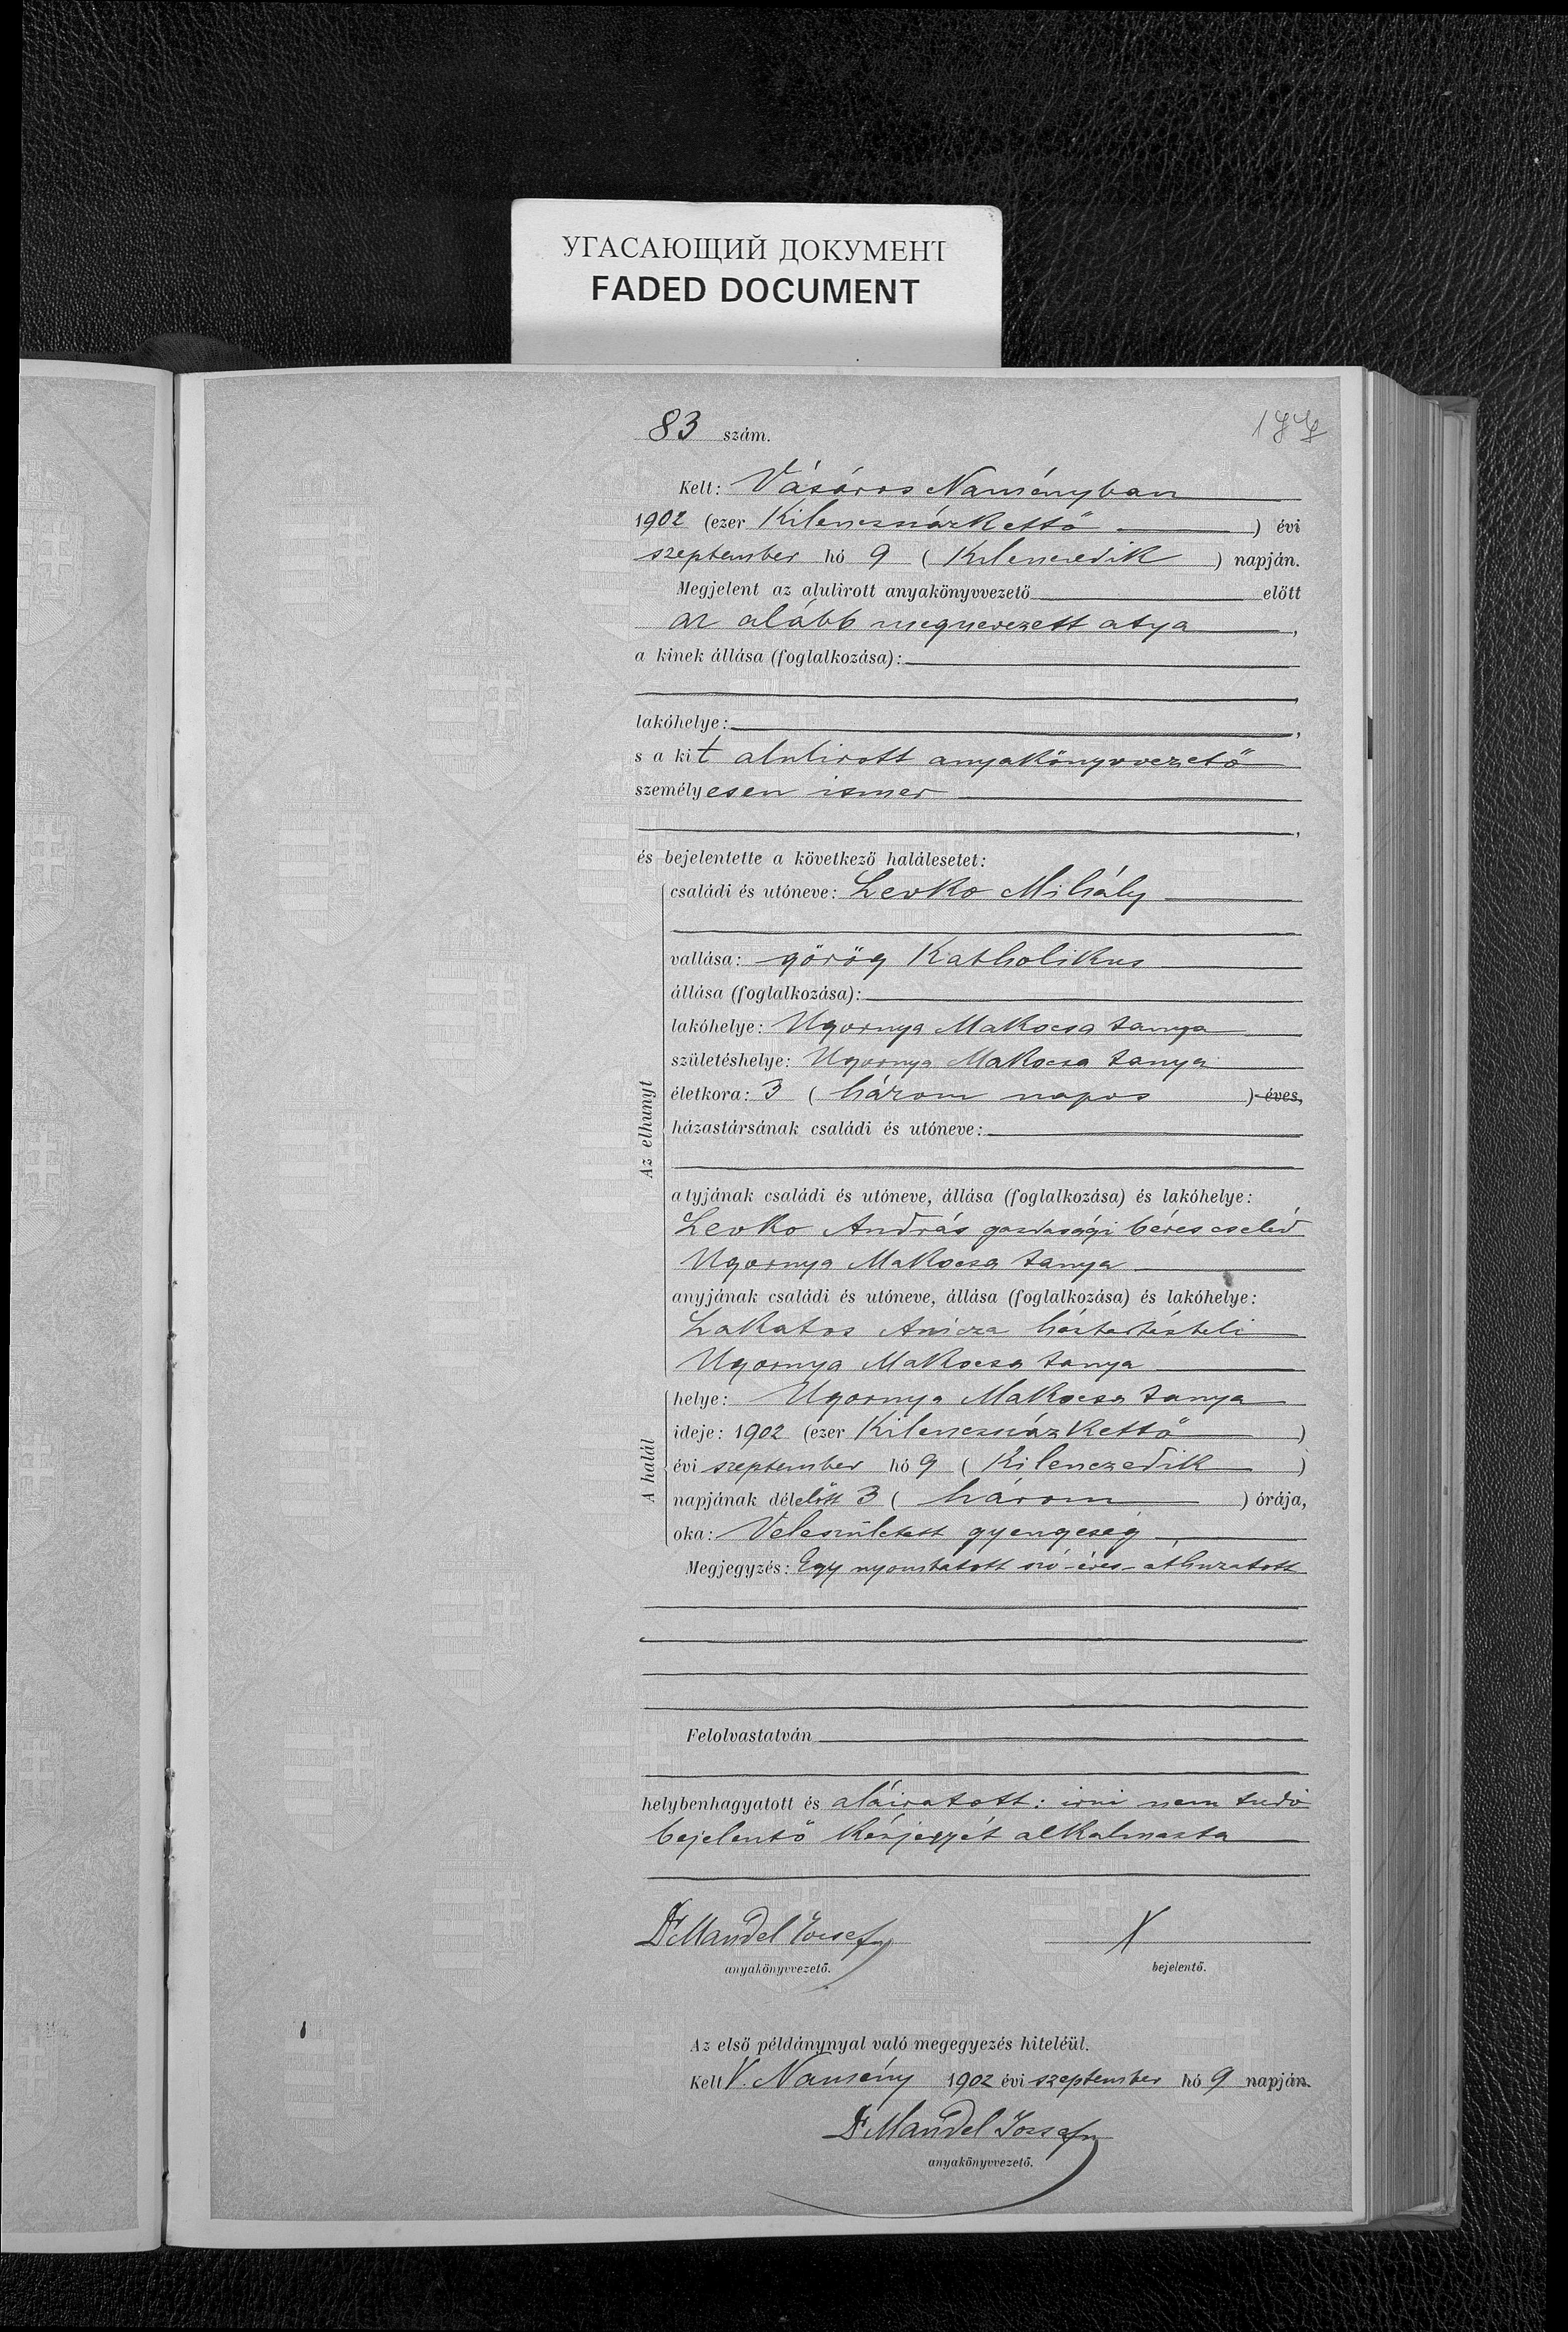 УГАСАЮЩИЙ ДОКУМЕНТ
FADED DOCUMENT
83 szám.
177
Kelt: Vásáros Naményban
1902 (ezer kilenczszázkettő ) évi
szeptember hó 9 ( kilenczedik ) napján.
Megjelent az alulirott anyakönyvvezető előtt
az alább megnevezett atya ,
a kinek állása (foglalkozása):
,
lakóhelye: ,
s a kit alulirott anyakönyvvezető
személyesen ismer
,
és bejelentette a következő halálesetet:
Az elhunyt
családi és utóneve: Levko Mihály
vallása: görög katholikus
állása (foglalkozása):
lakóhelye: Ugornya Makocsa tanya
születéshelye: Ugornya Makocsa tanya
életkora: 3 ( három napos ) éves,
házastársának családi és utóneve:
atyjának családi és utóneve, állása (foglalkozása) és lakóhelye:
Levko András gazdasági béres cseléd
Ugornya Makocsa tanya
anyjának családi és utóneve, állása (foglalkozása) és lakóhelye:
Lakatos Anicza háztartásbeli
Ugornya Makocsa tanya
A halál
helye: Ugornya Makocsa tanya
ideje: 1902 (ezer kilenczszázkettő )
évi szeptember hó 9 ( kilenczedik )
napjának délelőtt 3 ( három ) órája,
oka: Veleszületett gyengeség
Megjegyzés: Egy nyomtatott szó - éves - áthuzatott
Felolvastatván
helybenhagyatott és aláiratott: irni nem tudó
bejelentő kézjegyét alkalmazta
Dr Mandel József
X
anyakönyvvezető.
bejelentő.
Az első példánynyal való megegyezés hiteléül.
Kelt V. Namény 1902 évi szeptember hó 9 napján.
Dr Mandel József
anyakönyvvezető.